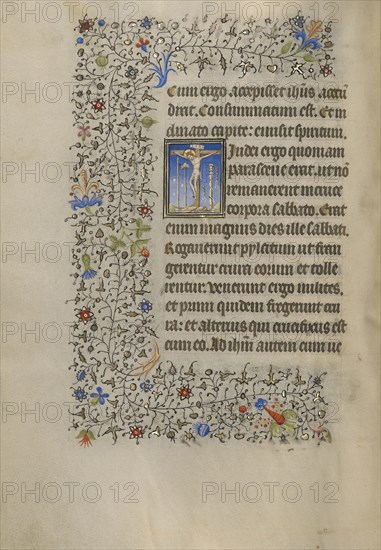 Cum ergo accepisset ihus acetu
dixit. Consummatum est. Et in
clinato capite: emisit spiritum.
Iudei ergo quoniam
parasceue erat, ut nõ
remanerent in cruce
corpora sabbato. Erat
enim magnus dies ille sabbati.
Rogauerunt pylatum ut fran
gerentur crura eorum et tolle
rentur. Venerunt ergo milites.
et primi quidem fregerunt cru
ra: et alterius qui crucifixus est
cum eo. Ad ihm autem cum ue
PHOTO 12
PHOTO 12
PHOTO 12
PHOTO 12
PHOTO 12
PHOTO 12